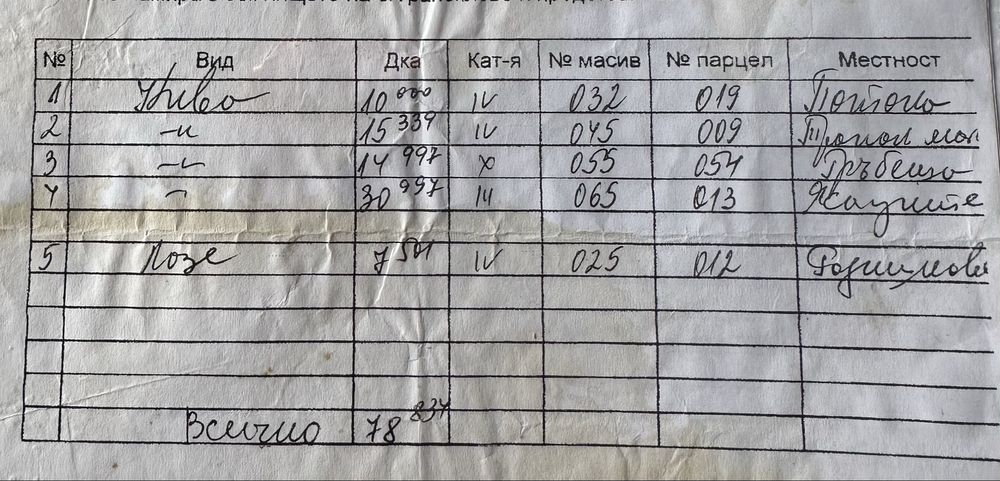 № Вид Дка Кат-я № масив № парцел Местност
1 Нива 10 000 IV 032 019 Потока
2 –и– 15 339 IV 045 009
3 –и– 14 997 X 055 054 Гръбеца
4 –"– 30 997 III 065 013
5 Лозе 7 501 IV 025 012
Всичко 78 834